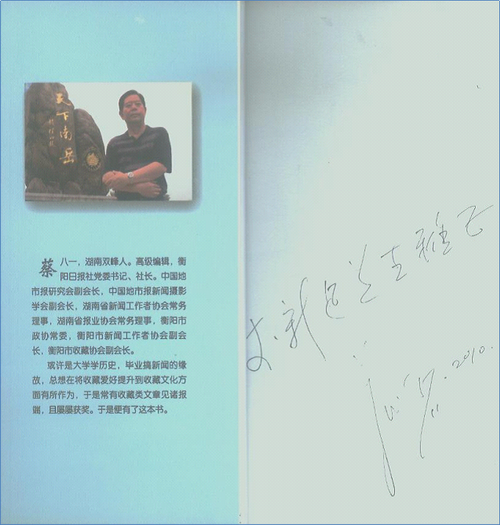 天下南岳
蔡八一，湖南双峰人。高级编辑，衡
阳日报社党委书记、社长。中国地
市报研究会副会长，中国地市报新闻摄影
学会副会长，湖南省新闻工作者协会常务
理事，湖南省报业协会常务理事，衡阳市
政协常委，衡阳市新闻工作者协会副会
长，衡阳市收藏协会副会长。
或许是大学学历史，毕业搞新闻的缘
故，总想在将收藏爱好提升到收藏文化方
面有所作为，于是常有收藏类文章见诸报
端，且屡屡获奖。于是便有了这本书。
雅正
2010.